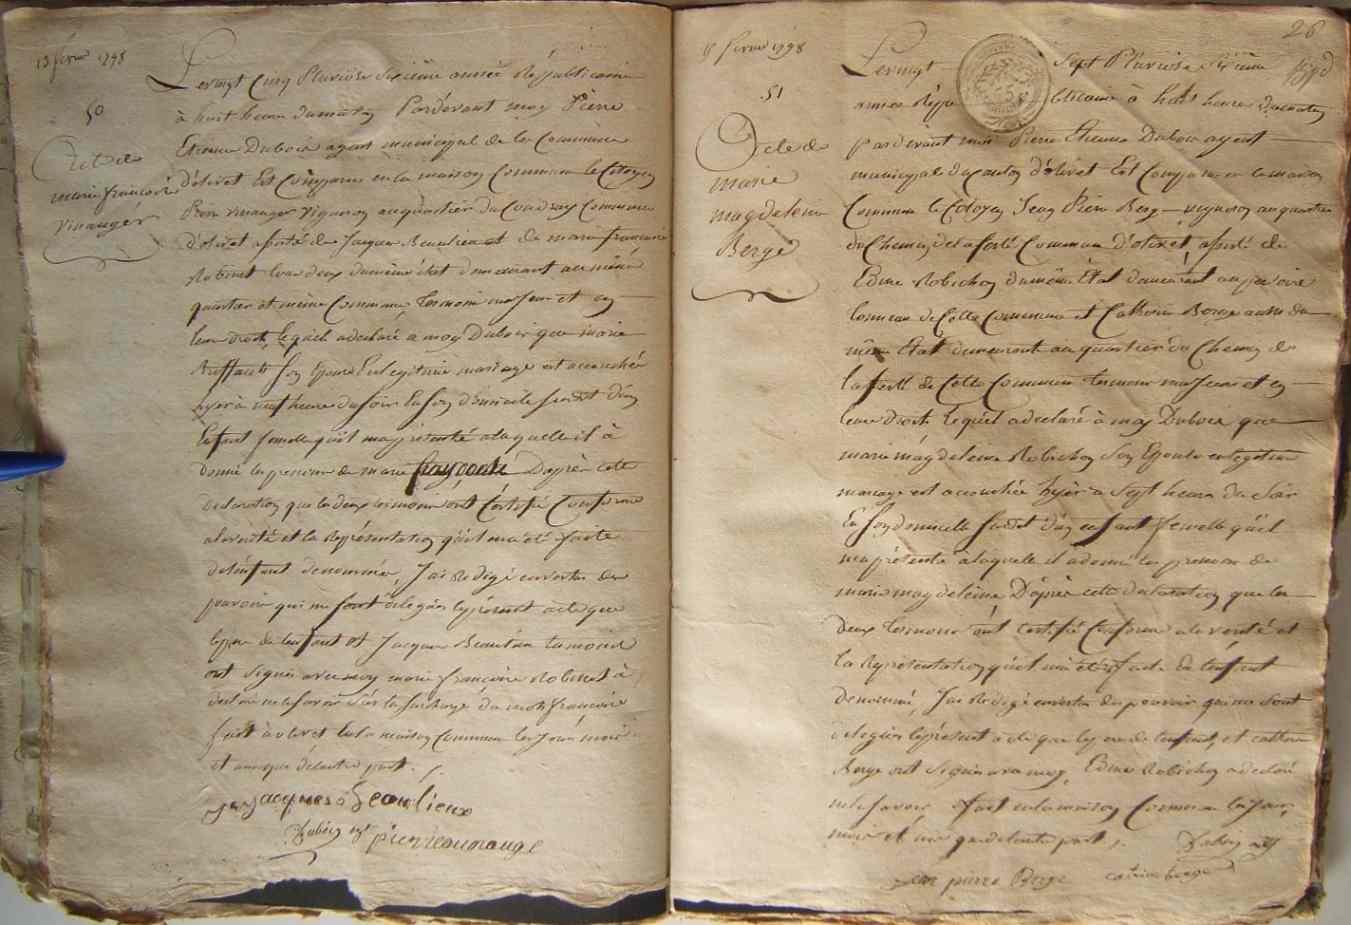 13 févr 1798
50
Acte de
marie françoise
vinauger
Le vingt Cinq Pluviose Sixième année Républicaine
à huit heures du matin Pardevant moy Pierre
Etienne Dubois agent municipal de la Commune
d'olivet Est Comparu en la maison Commune le Citoyen
Pierre vinauger vigneron au quartier du Coudray Commune
d'olivet assisté de Jacques Beaulieu et de marie françoise
Robinet tous deux du même état demeurant au même
quartier et même Commune temoins majeurs et en
leur droit, lequel a declaré a moy Dubois que marie
son Epouse En legitime mariage est accouchée
hyer à neuf heures du soir En son domicile susdit d'un
Enfant femelle qu'il m'a présenté a laquelle il à
donné les prenoms de marie françoise D'après cette
declaration que les deux temoins ont Certifié Conforme
a la verité et la Représentation qu'il m'a été faite
de l'enfant denommée, J'ai Redigé en vertu des
pouvoirs qui me sont délégués le présent acte que
le pere de l'enfant et Jacques Beaulieu temoins
ont Signés avec moy marie françoise Robinet à
déclaré ne le savoir Sur la surcharge du mot françoise
fait à olivet En la maison Commune les jour mois
et an que d'autre part.
jacques Beaulieux
Dubois agt pierre aunauge
26
15 fevrier 1798
51
Acte de
marie
magdeleine
Bergé
Le vingt Sept Pluviose Sixième
année Répu blicaine à huit heures du matin
pardevant moi Pierre Etienne Dubois agent
municipal du Canton d'olivet Est Comparu en la maison
Commune le Citoyen Jean Pierre Bergé vigneron au quartier
du Chemin de la ferté Commune d'olivet, assisté de
Edme Robichon du même Etat demeurant au
de Cette Commune et Catherine Bergé aussi du
même Etat demeurant au quartier du Chemin de
la ferté de Cette Commune temoins majeurs et en
leurs droits lequel a declaré à moy Dubois que
marie magdeleine Robichon Son Epouse en legitime
mariage est accouchée hyer a Sept heures du Soir
En Son domicille susdit d'un enfant femelle qu'il
m'a présenté a laquelle il a donné les prenoms de
marie magdeleine D'après cette declaration que les
deux temoins ont certifié Conforme a la verité et
la Représentation qu'il m'a été faite de l'enfant
denommé, J'ai Redigé en vertu des pouvoirs qui me sont
délégués le présent acte que le pere de l'enfant, et catherine
Berge ont Signés avec moy Edme Robichon a declaré
ne le savoir, fait en la maison Commune les jour,
mois et an que d'autre part. Dubois agt
jean pierre Berge catrine berge